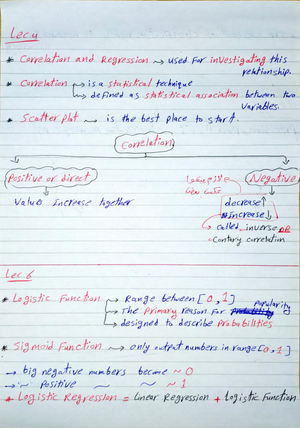 Lec.4
* Correlation and Regression ~> used for investigating this
relationship.
* Correlation → is a statistical technique
→ defined as statistical association between two
Variables.
* Scatterplot ~ is the best place to start.
Correlation
Positive or direct
Negative
Values Increase together
decrease↑
Increase↓
Called inverse OR
Contary correlation
Lec.6
* Logistic Function → range between [0,1]
→ The primary reason for popularity
→ designed to describe Probabilities
* Sigmoid Function ~> only output numbers in range [0,1]
→ big negative numbers become ~ 0
→ ~ Positive ~ ~ ~ 1
* Logistic Regression = Linear Regression + Logistic Function